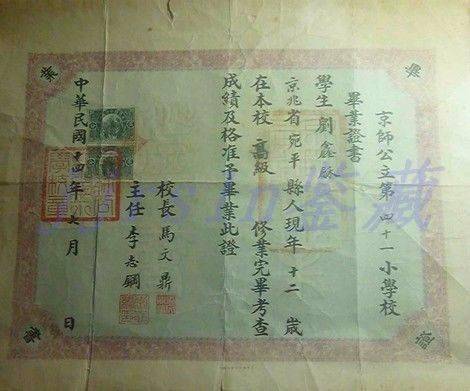 京師公立第四十一小學校
畢業證書
學生劉鑫
京兆省宛平縣人現年十二歲
在本校高級修業完畢考查
成績及格准予畢業此證
校長馬文鼎
主任李志鋼
中華民國十四年 月 日